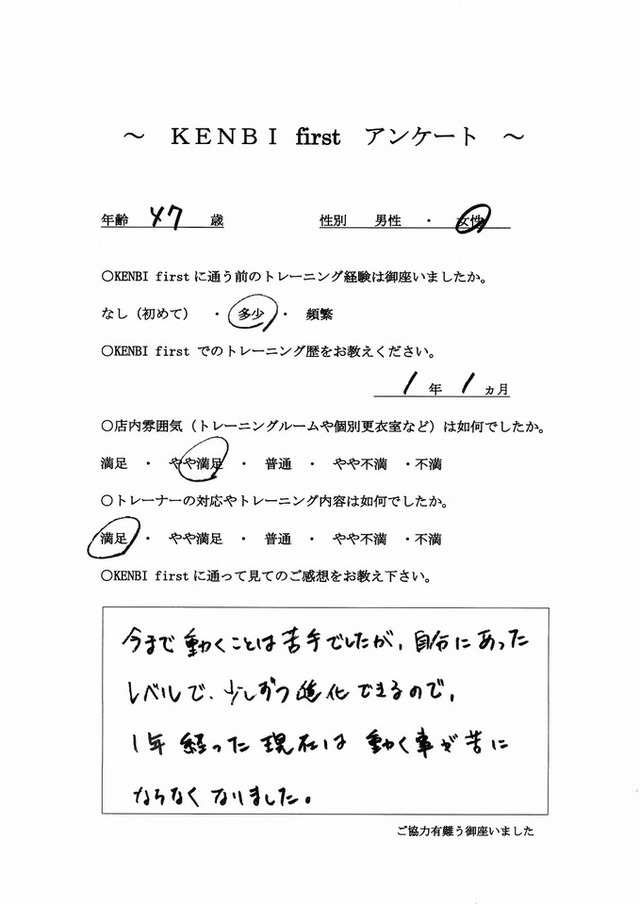 ～ KENBI first アンケート ～
年齢 47 歳 性別 男性 ・ 女性
○KENBI first に通う前のトレーニング経験は御座いましたか。
なし（初めて） ・ 多少 ・ 頻繁
○KENBI first でのトレーニング歴をお教えください。
1 年 1 ヵ月
○店内雰囲気（トレーニングルームや個別更衣室など）は如何でしたか。
満足 ・ やや満足 ・ 普通 ・ やや不満 ・不満
○トレーナーの対応やトレーニング内容は如何でしたか。
満足 ・ やや満足 ・ 普通 ・ やや不満 ・不満
○KENBI first に通って見てのご感想をお教え下さい。
今まで動くことは苦手でしたが、自分にあった
レベルで、少しずつ進化できるので、
1年経った現在は動く事が苦に
ならなくなりました。
ご協力有難う御座いました